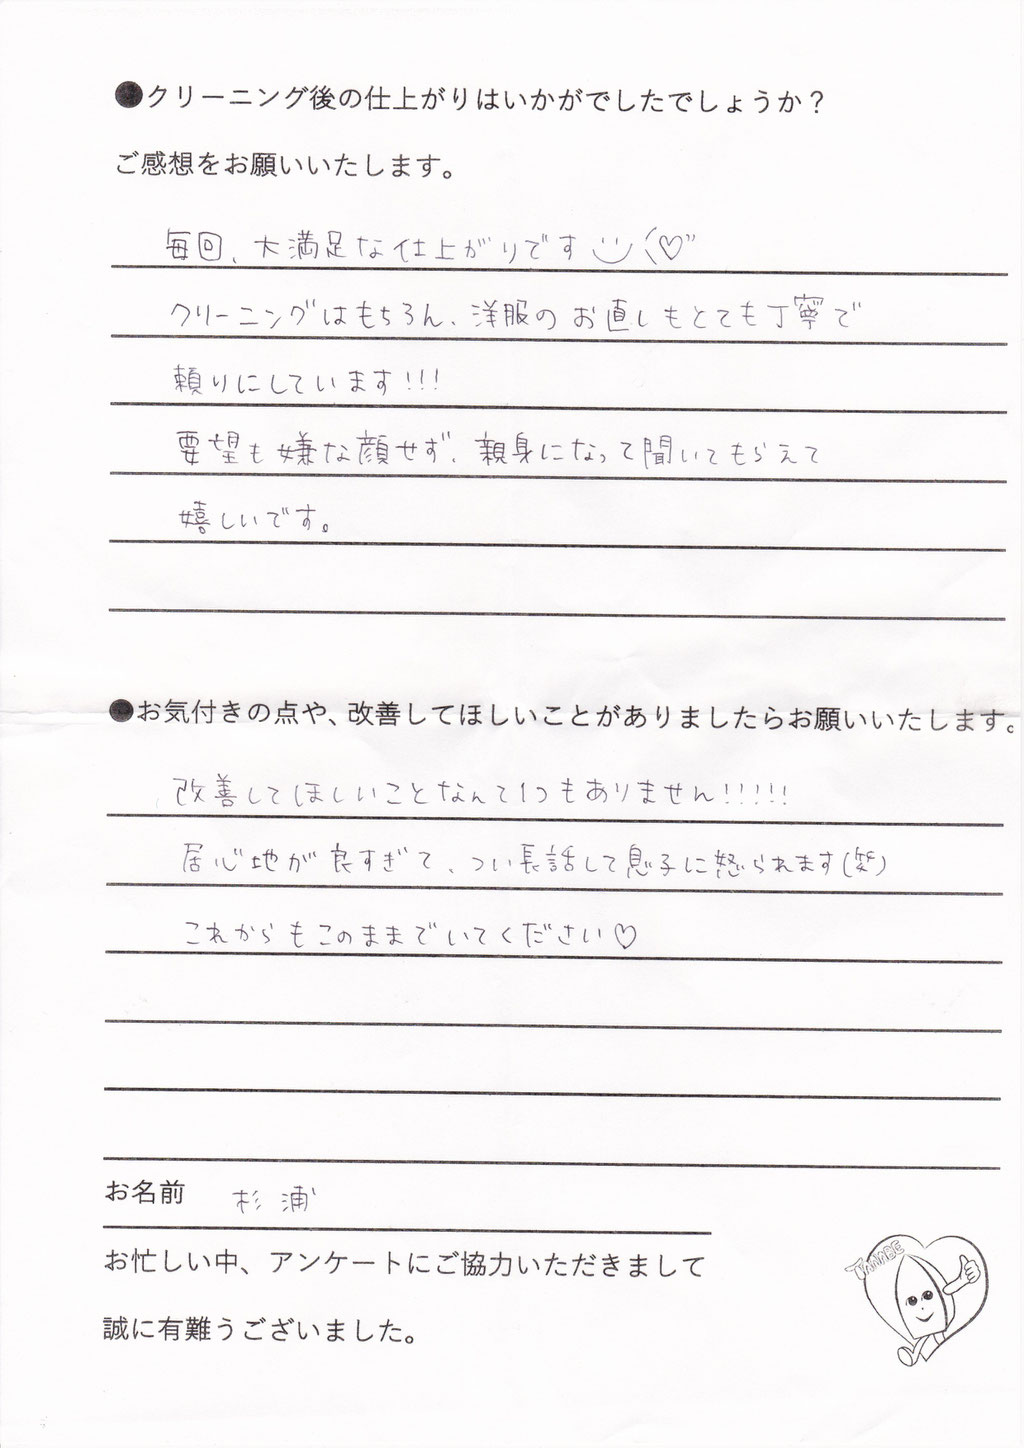 ●クリーニング後の仕上がりはいかがでしたでしょうか？
ご感想をお願いいたします。
毎回、大満足な仕上がりです♡"
クリーニングはもちろん、洋服のお直しもとても丁寧で
頼りにしています!!!
要望も嫌な顔せず、親身になって聞いてもらえて
嬉しいです。
●お気付きの点や、改善してほしいことがありましたらお願いいたします。
改善してほしいことなんて1つもありません!!!!!
居心地が良すぎて、つい長話して息子に怒られます(笑)
これからもこのままでいてください♡
お名前 杉浦
お忙しい中、アンケートにご協力いただきまして
誠に有難うございました。
TANABE